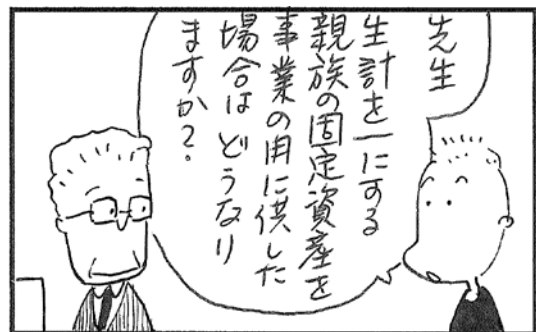 先生
生計を一にする
親族の固定資産を
事業の用に供した
場合はどうなり
ますか?